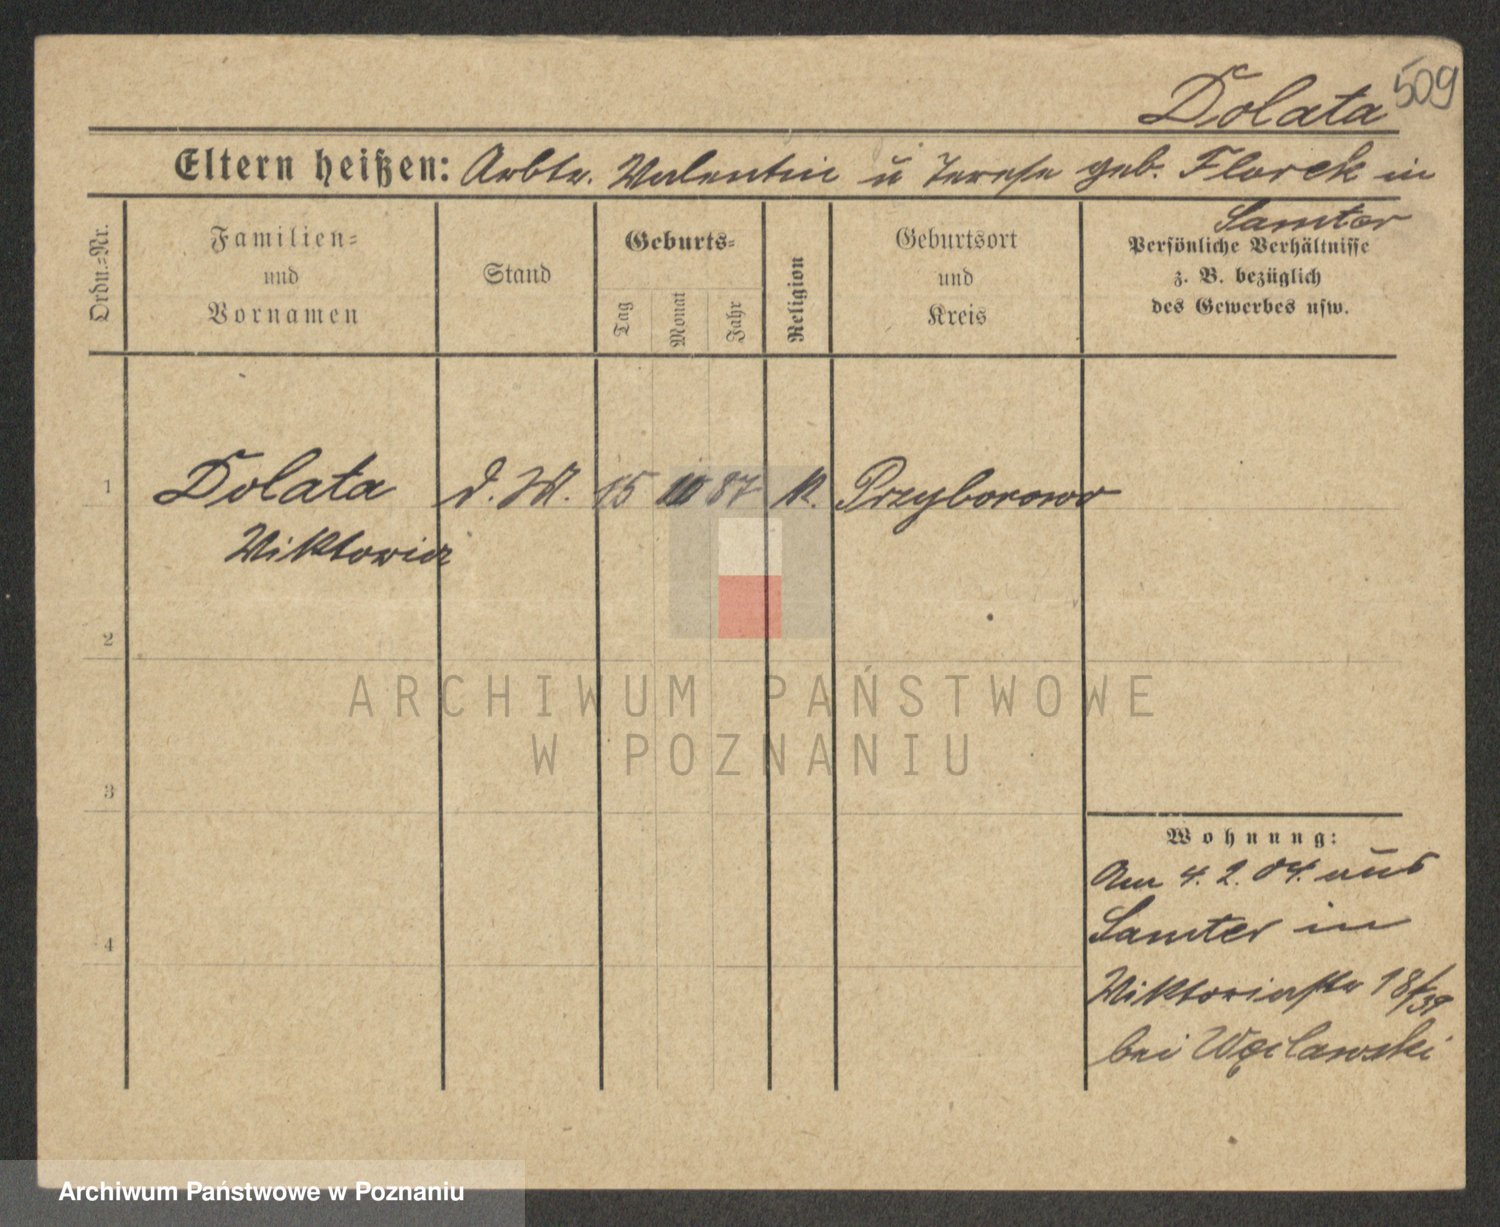 509
Dolata
Eltern heißen: Arbtr. Valentin u Terese geb. Florek in
Samter
Ordn.-Nr.
Familien-
und
Vornamen
Stand
Geburts-
Tag
Monat
Jahr
Religion
Geburtsort
und
Kreis
Persönliche Verhältnisse
z. B. bezüglich
des Gewerbes usw.
1 Dolata d. M. 15 10 87 K. Przyborowo
Viktoria
2
ARCHIWUM PAŃSTWOWE
W POZNANIU
3
Wohnung:
Am 4. 2. 04. aus
4
Samter in
Viktoriastr 18/39
bei Węclawski
Archiwum Państwowe w Poznaniu